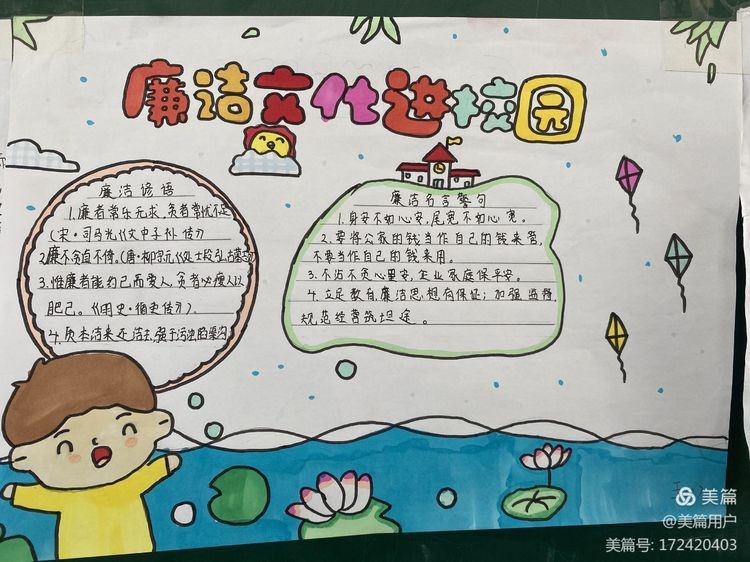 廉洁文化进校园
廉洁谚语
1.廉者常乐无求,贪者常忧不足
(宋·司马光《文中子补传》)
2.廉不贪直不倚,(唐·柳宗元《处士段弘古墓志》
3.惟廉者能约己而爱人,贪者必瘦人以
肥己。《明史·循吏传》).
4.质本洁来还洁去,强于污淖陷渠沟
廉洁名言警句
1.身安不如心安,屋宽不如心宽。
2.要将公家的钱当作自己的钱来管,
不要当作自己的钱来用。
3.不沾不贪心里安,企业家庭保平安。
4.立足教自,廉洁思想有保证;加强监督,
规范经营筑坦途。
美篇
@美篇用户
美篇号:172420403